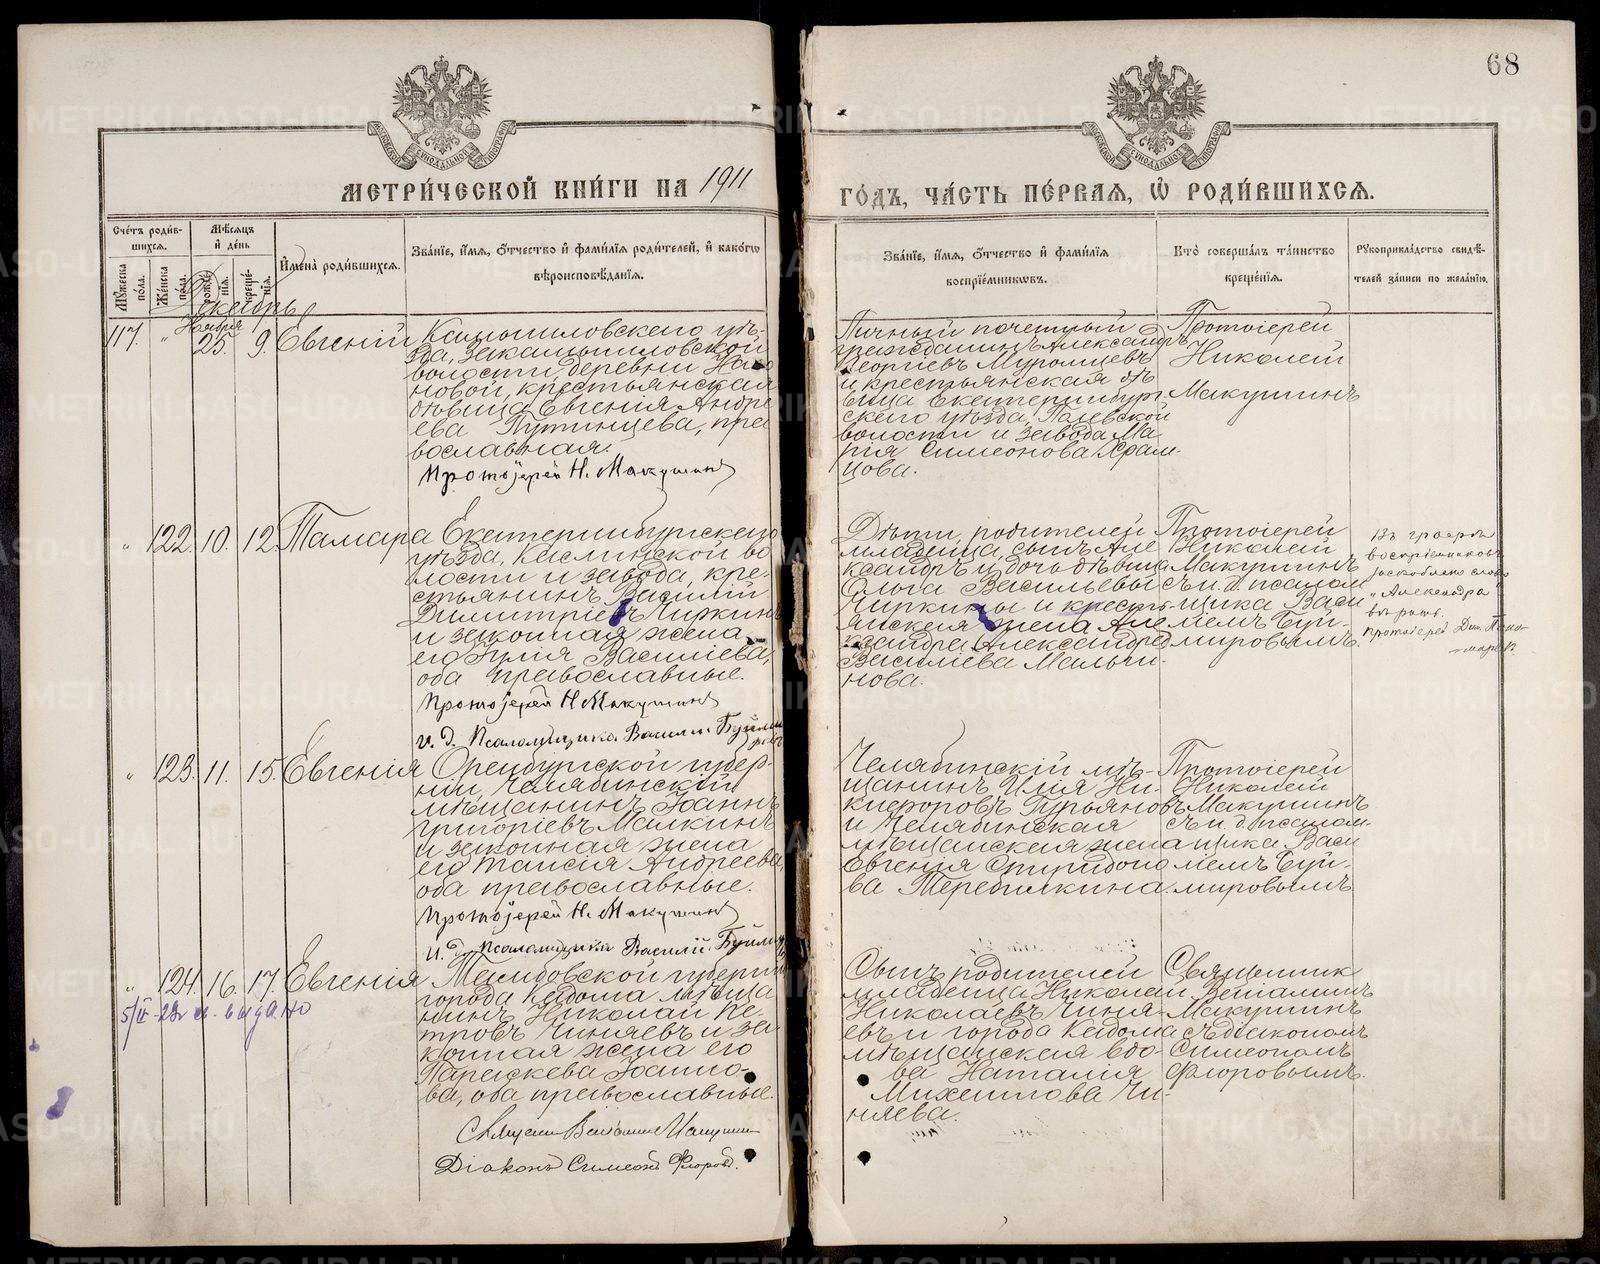 68
МЕТРИ́ЧЕСКОЙ КНИ́ГИ НА 1911
ГО́ДЪ, ЧА́СТЬ ПЕ́РВАЯ, Ѽ РОДИ́ВШИХСѦ.
Сче́тъ роди́в-
шихся.
Мѣ́сяцъ
и́ де́нь
Му́жеска по́ла.
Же́нска по́ла.
рожде́нія.
креще́нія.
И҆мена̀ роди́вшихся.
Зва́нїе, и҆́мя, ѻ҆́тчество и҆ фами́лїя роди́телей, и҆ како́гѡ
вѣроисповѣ́данїя.
Зва́нїе, и҆́мя, ѻ҆́тчество и҆ фами́лїя
воспрїе́мниковъ.
Кто̀ соверша́лъ та́инство
креще́нїя.
Рꙋкоприкла́дство свидѣ́-
телей за́писи по жела́нїю.
Декабрь
Ноября
117. " 25. 9. Евгеній
Камышловскаго уѣ-
зда, Закамышловской
волости, деревни На
новой, крестьянская
дѣвица Евгенія Андре
ева Путинцева, пра
вославная.
Протоіерей Н. Макушинъ
Личный почетный
гражданинъ Александръ
Георгіевъ Муромцевъ
и крестьянская дѣ
вица Екатеринбург
скаго уѣзда,
волости и завода Ма
рія Симеонова Храм-
цова.
Протоіерей
Николай
Макушинъ
" 122. 10. 12. Тамара
Екатеринбургскаго
уѣзда, Каслинской во
лости и завода, кре-
стьянинъ Василій
Димитріевъ Чиркинъ
и законная жена
его Юлія Василіева,
оба православные.
Протоіерей Н Макушинъ
и. д. Псаломщика Василій Буйми
ровъ
Дѣти родителей
младенца, сынъ Але
ксандръ и дочь дѣвица
Ольга Васильевы
Чиркины и кресть-
янская жена Але
ксандра Александра
Василіева Мальги-
нова.
Протоіерей
Николай
Макушинъ
съ и. д. псалом
щика Васи
ліемъ Буй-
мировымъ.
Въ графѣ
воспріемниковъ
заскоблено слово
"Александра
Протоіерей Дим.
" 123. 11. 15. Евгенія
Оренбургской губер-
ніи, Челябинскій
мѣщанинъ Іоаннъ
Григоріевъ Малкинъ
и законная жена
его Таисія Андреева,
оба православные.
Протоіерей Н. Макушинъ
и. д. псаломщика Василій Буйми
Челябинскій мѣ-
щанинъ Илія Ни-
кифоровъ Гурьяновъ
и Челябинская
мѣщанская жена
Евгенія Спиридоно
ва Теребилкина.
Протоіерей
Николай
Макушинъ
съ и. д. псалом-
щика Васи
ліемъ Буй-
мировымъ
" 124. 16. 17. Евгенія
5/IV 23 г. выдано
Тамбовской губерніи
города Кадома мѣща
нинъ Николай Пе-
тровъ Чиняевъ и за
конная жена его
Параскева Іоанно-
ва, оба православные.
Священ. Веніаминъ Макушин
Діаконъ Симеонъ Флоровъ.
Сынъ родителей
младенца Николай
Николаевъ Чиня-
евъ и города Кадома
мѣщанская вдо-
ва Наталія
Михаилова Чи-
няева.
Священник
Веніаминъ
Макушинъ
съ діакономъ
Симеономъ
Флоровымъ.